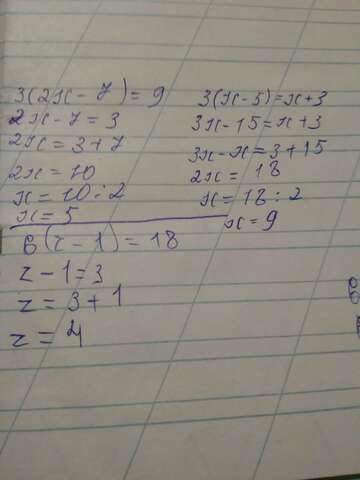 3(2x - 7) = 9
2x - 7 = 3
2x = 3 + 7
2x = 10
x = 10 : 2
x = 5
3(x - 5) = x + 3
3x - 15 = x + 3
3x - x = 3 + 15
2x = 18
x = 18 : 2
x = 9
6(z - 1) = 18
z - 1 = 3
z = 3 + 1
z = 4